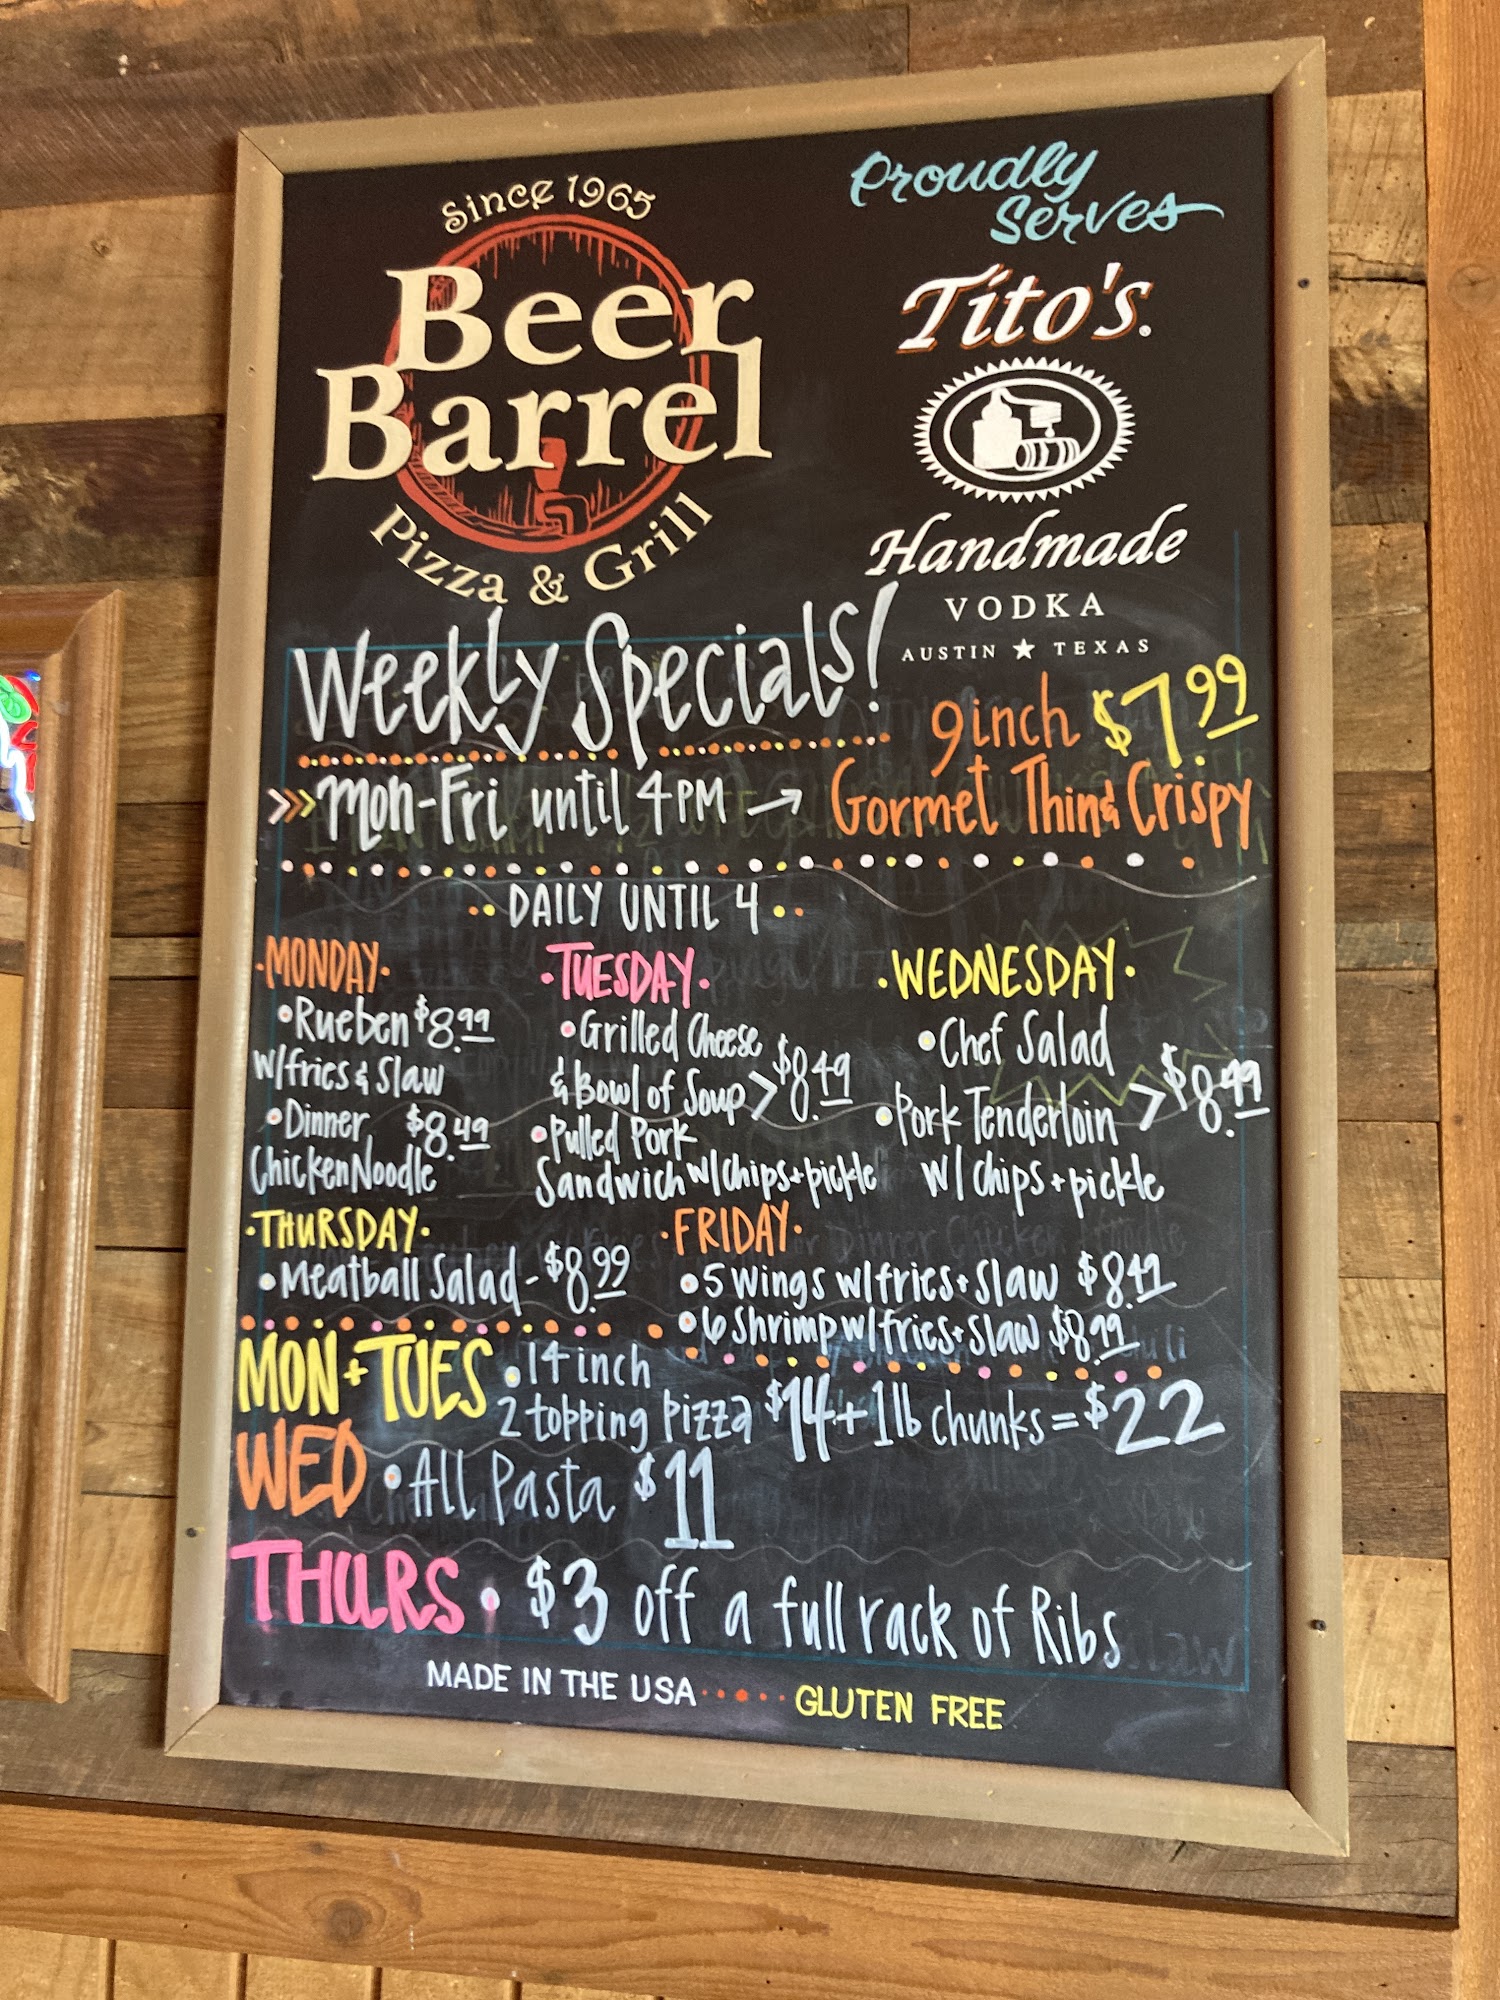 Since 1965
Beer
Barrel
Pizza & Grill
Proudly
Serves
Tito's®
Handmade
VODKA
AUSTIN ★ TEXAS
Weekly Specials!
9inch $7.99
>>> Mon-Fri until 4PM → Gormet Thin & Crispy
DAILY UNTIL 4
•MONDAY•
•Rueben $8.99
w/fries & Slaw
•Dinner $8.49
Chicken Noodle
•TUESDAY•
•Grilled Cheese
& Bowl of Soup > $8.49
•Pulled Pork
Sandwich w/chips + pickle
•WEDNESDAY•
•Chef Salad
•Pork Tenderloin > $8.99
w/ chips + pickle
•THURSDAY•
•Meatball Salad - $8.99
•FRIDAY•
•5 wings w/fries + Slaw $8.49
•6 Shrimp w/fries + Slaw $8.99
MON + TUES •14 inch
2 topping pizza $14 + 1lb chunks = $22
WED •All Pasta $11
THURS • $3 off a full rack of Ribs
MADE IN THE USA ••••••• GLUTEN FREE